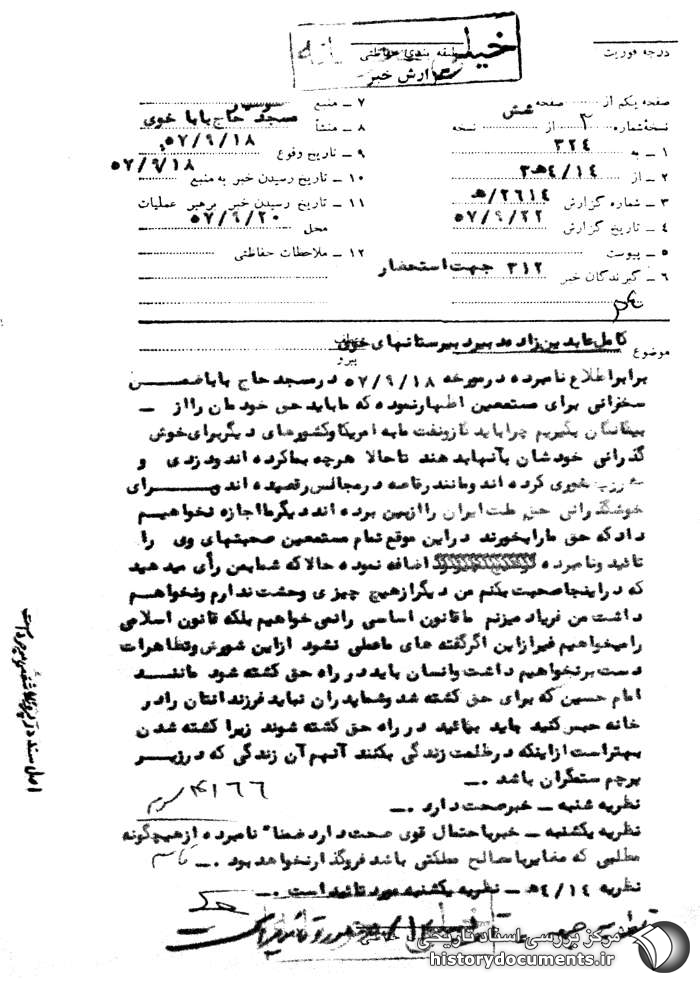 درجه فوریت
طبقه بندی حفاظتی
خیلی
گزارش خبر
صفحه یکم از صفحه
نسخه شماره ۲ از شش نسخه
۱ ـ به ۳۲۴
۲ ـ از ۴/۱۴ھ۲
۳ ـ شماره گزارش ۲۶۱۴/ھ
۴ ـ تاریخ گزارش ۵۷/۹/۲۲
۵ ـ پیوست
۶ ـ گیرندگان خبر ۳۱۲ جهت استحضار
۷ ـ منبع
۸ ـ منشأ مسجد حاج بابا خوی
۹ ـ تاریخ وقوع ۵۷/۹/۱۸
۱۰ ـ تاریخ رسیدن خبر به منبع ۵۷/۹/۱۸
۱۱ ـ تاریخ رسیدن خبر برهبر عملیات
محل ۵۷/۹/۲۰
۱۲ ـ ملاحظات حفاظتی
موضوع کامل عابدین زاده دبیر دبیرستانهای خوی
پیرو
برابر اطلاع نامبرده در مورخه ۵۷/۹/۱۸ در مسجد حاج بابا ضمن
سخنرانی برای مستمعین اظهار نموده که ما باید حق خودمان را از ـ
بیگانگان بگیریم چرا باید گاز و نفت ما به امریکا و کشورهای دیگر برای خوش
گذرانی خودشان بآنها بدهند تا حالا هرچه بما کرده اند و دزدی و
خوری کرده اند و مانند رقاصه در مجالس رقصیده اند برای
خوشگذرانی حق ملت ایران را از بین برده اند دیگر ما اجازه نخواهیم
داد که حق ما را بخورند در این موقع تمام مستمعین صحبتهای وی را
تائید و نامبرده اضافه نموده حالا که شما بمن رأی میدهید
که در اینجا صحبت بکنم من دیگر از هیچ چیزی وحشت ندارم و نخواهم
داشت من فریاد میزنم ما قانون اساسی را نمی خواهیم بلکه قانون اسلامی
را میخواهیم غیر از این اگر گفته های ما عملی نشود از این شورش و تظاهرات
دست بر نخواهیم داشت و انسان باید در راه حق کشته شود مانند
امام حسین که برای حق کشته شد و شما پدران نباید فرزندانتان را در
خانه حبس کنید باید بیائید در راه حق کشته شوند زیرا کشته شدن
بهتر است از اینکه در ظلمت زندگی بکنند آنهم آن زندگی که در زیر
پرچم ستمگران باشد .ـ
۴۱۶۶
نظریه شنبه ـ خبر صحت دارد .ـ
نظریه یکشنبه ـ خبر باحتمال قوی صحت دارد ضمنا" نامبرده از هیچگونه
مطلبی که مغایر با مصالح مملکتی باشد فروگذار نخواهد بود .ـ
نظریه ۴/۱۴ھ ـ نظریه یکشنبه مورد تائید است .ـ
اصل سند در پرونده
مرکز بررسی اسناد تاریخی
historydocuments.ir